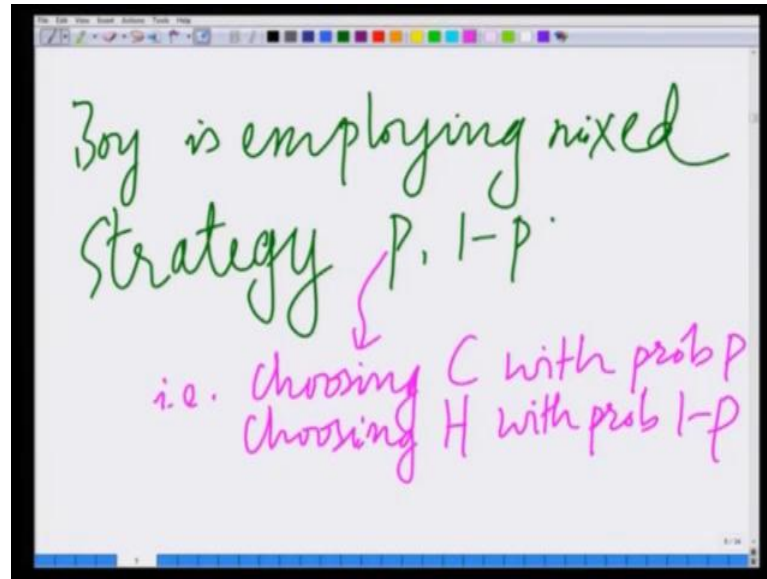 File Edit View Insert Actions Tools Help
Boy is employing mixed
Strategy p, 1-p.
i.e. Choosing C with prob p
Choosing H with prob 1-p